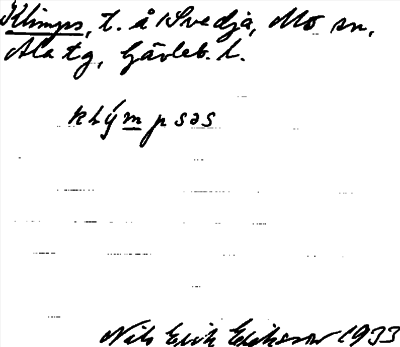 Klimps, t. å Svedja, Mo sn,
Ala tg, Gävleb. l.
klým̲psəs
Nils Erik Eriksson 1933